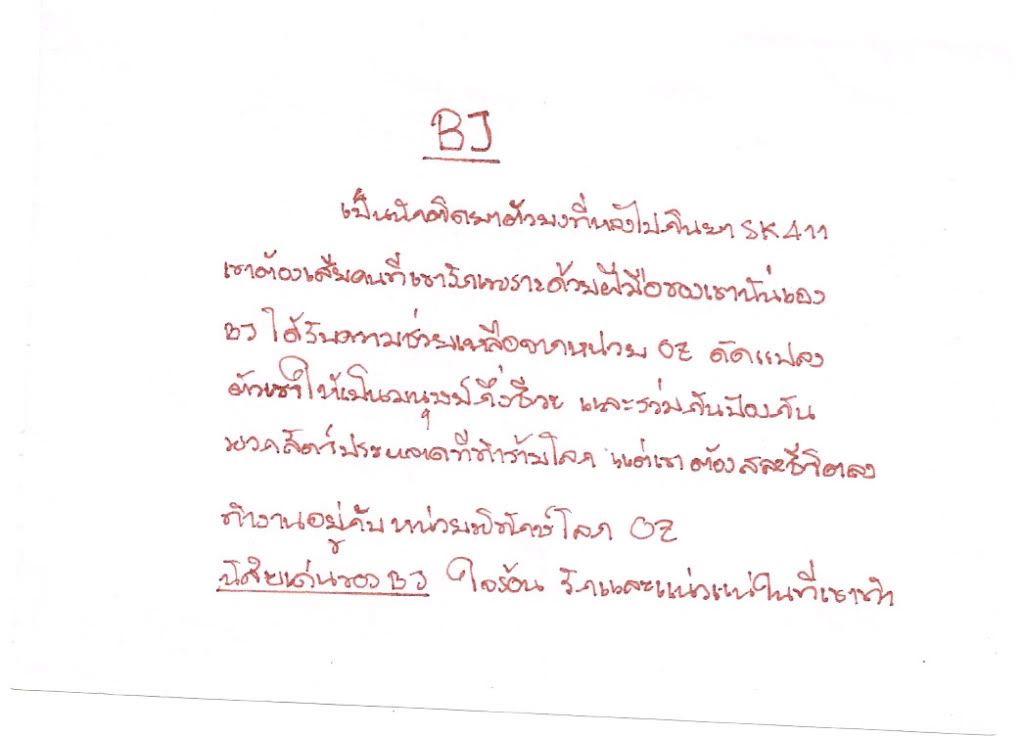 BJ
เป็นนักติดยาตัวยงที่หลังไปกินยา SK411
เขาต้องเสียคนที่เขารักเพราะด้วยฝีมือของเขานั่นเอง
BJ ได้รับความช่วยเหลือจากหน่วย OZ ดัดแปลง
ตัวเขาให้เป็นมนุษย์กึ่งชีวะ และร่วมกันป้องกัน
พวกสัตว์ประหลาดที่ทำร้ายโลก แต่เขาต้องสละชีวิตลง
ทำงานอยู่กับหน่วยพิทักษ์โลก OZ
นิสัยเด่นของ BJ ใจร้อน รักและแน่วแน่ในที่เขาทำ